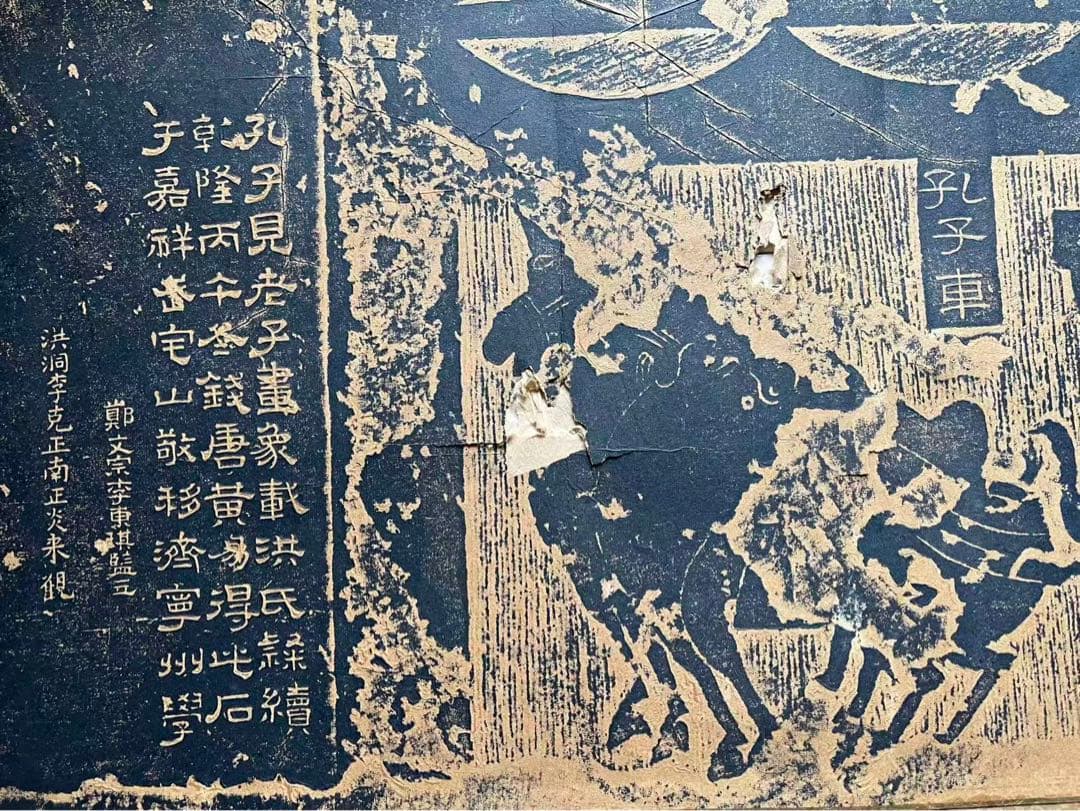 孔子車
孔子見老子畫象載洪氏隸續
乾隆丙午冬錢唐黃易得此石
于嘉祥武宅山敬移濟寧州學
鄭支宗李東琪監立
洪洞李克正南正炎來觀